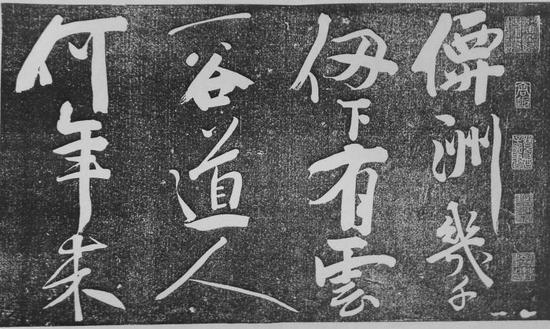 僊洲幾千
仞下有雲
一谷道人
何年来